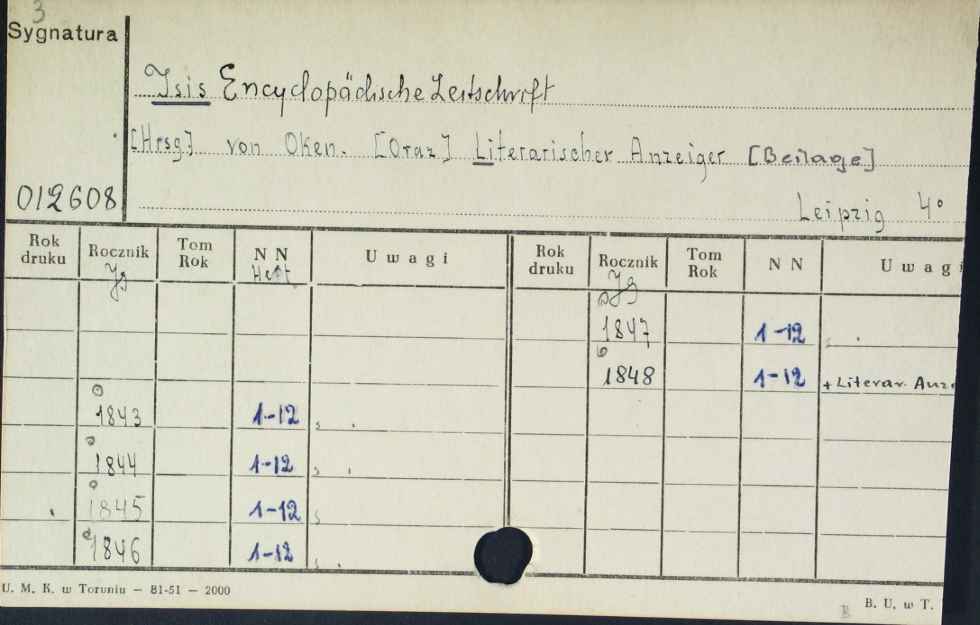 3
Sygnatura
Isis Encyclopädische Zeitschrift
[Hrsg] von Oken. [Oraz] Literarischer Anzeiger [Beilage]
012608
Leipzig 4°
Rok druku Rocznik Tom Rok N N U w a g i Rok druku Rocznik Tom Rok N N U w a g i
Jg Heft Jg
1847 1-12
1848 1-12 + Literar. Anze
1843 1-12
1844 1-12
1845 1-12
1846 1-12
U. M. K. w Toruniu — 81-51 — 2000
B B. U. w T.